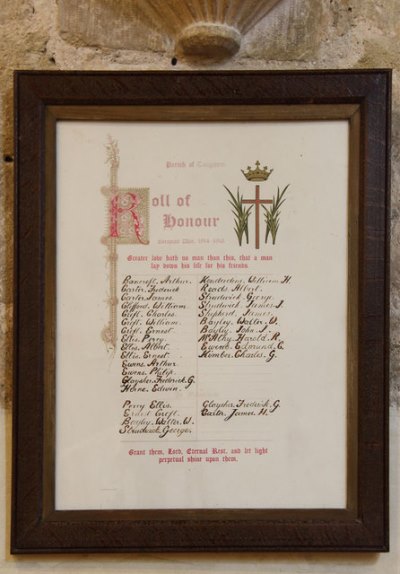 Parish of
Roll of
Honour
European War, 1914-1918
Greater love hath no man than this, that a man
lay down his life for his friends.
Bancroft, Arthur.
Carter, Frederick
Carter, James.
Clifford, William
Croft, Charles
Croft, William
Croft, Ernest
Ellis, Percy
Ellis, Albert.
Ellis, Ernest
Ewens, Arthur
Ewens, Philip
Frederick G.
Horne, Edwin
William H.
Reeds, Albert.
Strudwick, George.
Strudwick, James J.
Shepherd, James.
Bayley, Walter W.
Bayley, John J.
Harold R.
Edmund C.
Kimber, Charles G.
Percy Ellis.
Ernest Croft
Bayley, Walter, W.
Strudwick, George.
Frederick, G.
Carter, James H.
Grant them, Lord, Eternal Rest, and let light
perpetual shine upon them.